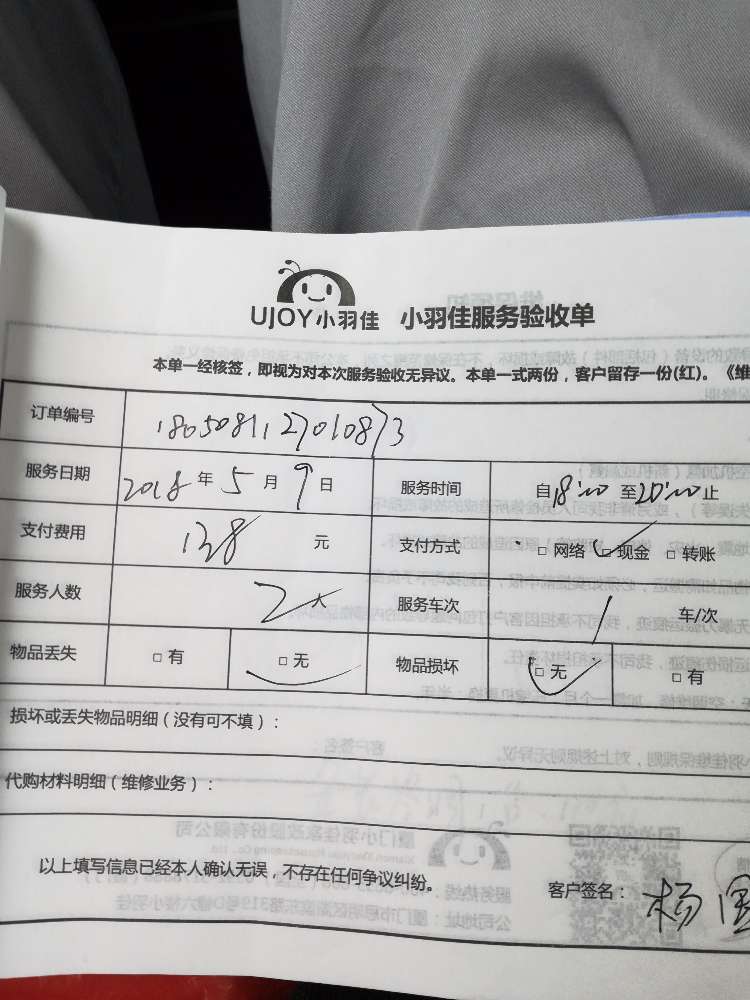 UJOY小羽佳 小羽佳服务验收单
本单一经核签，即视为对本次服务验收无异议。本单一式两份，客户留存一份(红)。《维
订单编号 1805081127010873
服务日期 2018 年 5 月 9 日 服务时间 自18:00 至20:00止
支付费用 138 元 支付方式 □ 网络 □ 现金 □ 转账
服务人数 2人 服务车次 / 车/次
物品丢失 □ 有 □ 无 物品损坏 □ 无 □ 有
损坏或丢失物品明细（没有可不填）：
代购材料明细（维修业务）：
以上填写信息已经本人确认无误，不存在任何争议纠纷。 客户签名： 杨